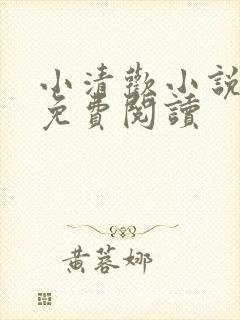 小清歡小說
免費閱讀
黃蓉娜